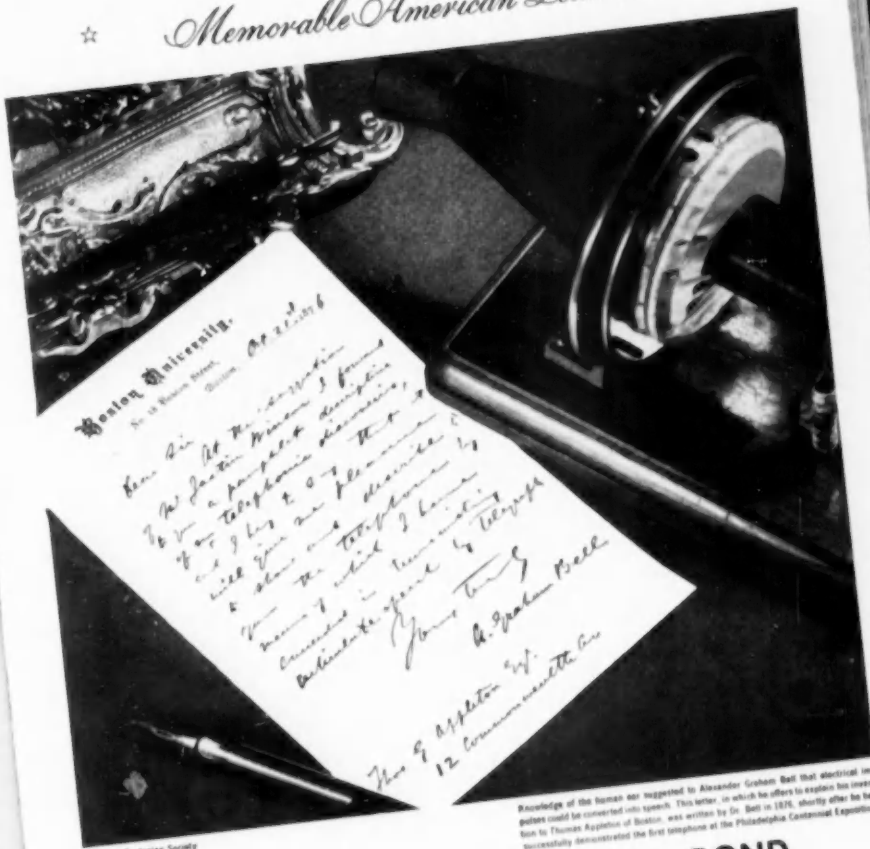 ☆ Memorable American
Boston University.
No. 18 Beacon Street,
Boston, Oct. 21st 1876
Dear Sir
At the suggestion
of Mr Justin Winsor I forward
to you a pamphlet descriptive
of my telephonic discoveries,
and I beg to say that it
will give me pleasure
to show and describe to
you the telephone by
means of which I have
succeeded in transmitting
articulate speech by telegraph
Yours Truly
A. Graham Bell
Thos G Appleton Esq.
12 Commonwealth Ave
Society
Knowledge of the human ear suggested to Alexander Graham Bell that electrical im
pulses could be converted into speech. This letter, in which he offers to explain his inven
tion to Thomas Appleton of Boston, was written by Dr. Bell in 1876, shortly after he ha
successfully demonstrated the first telephone at the Philadelphia Centennial Expositio
BOND